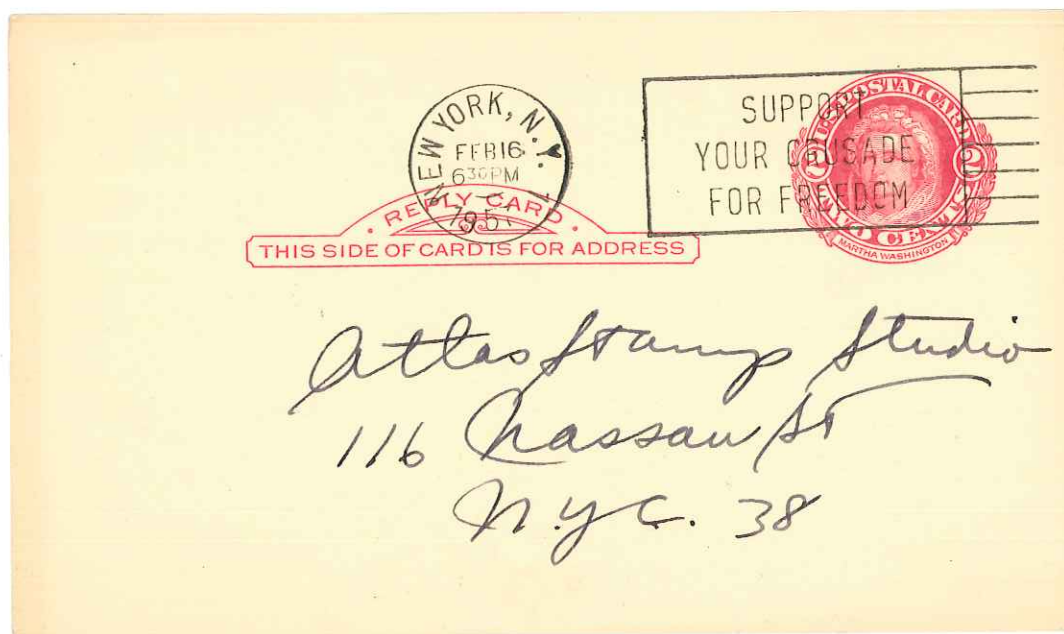 NEW YORK, N.Y. 1
FEB 16
6 30 PM
195
SUPPORT
YOUR CRUSADE
FOR FREEDOM
U.S. POSTAL CARD
2 TWO CENTS 2
MARTHA WASHINGTON
REPLY CARD
THIS SIDE OF CARD IS FOR ADDRESS
Atlas Stamp Studio
116 Nassau St
N.Y.C. 38